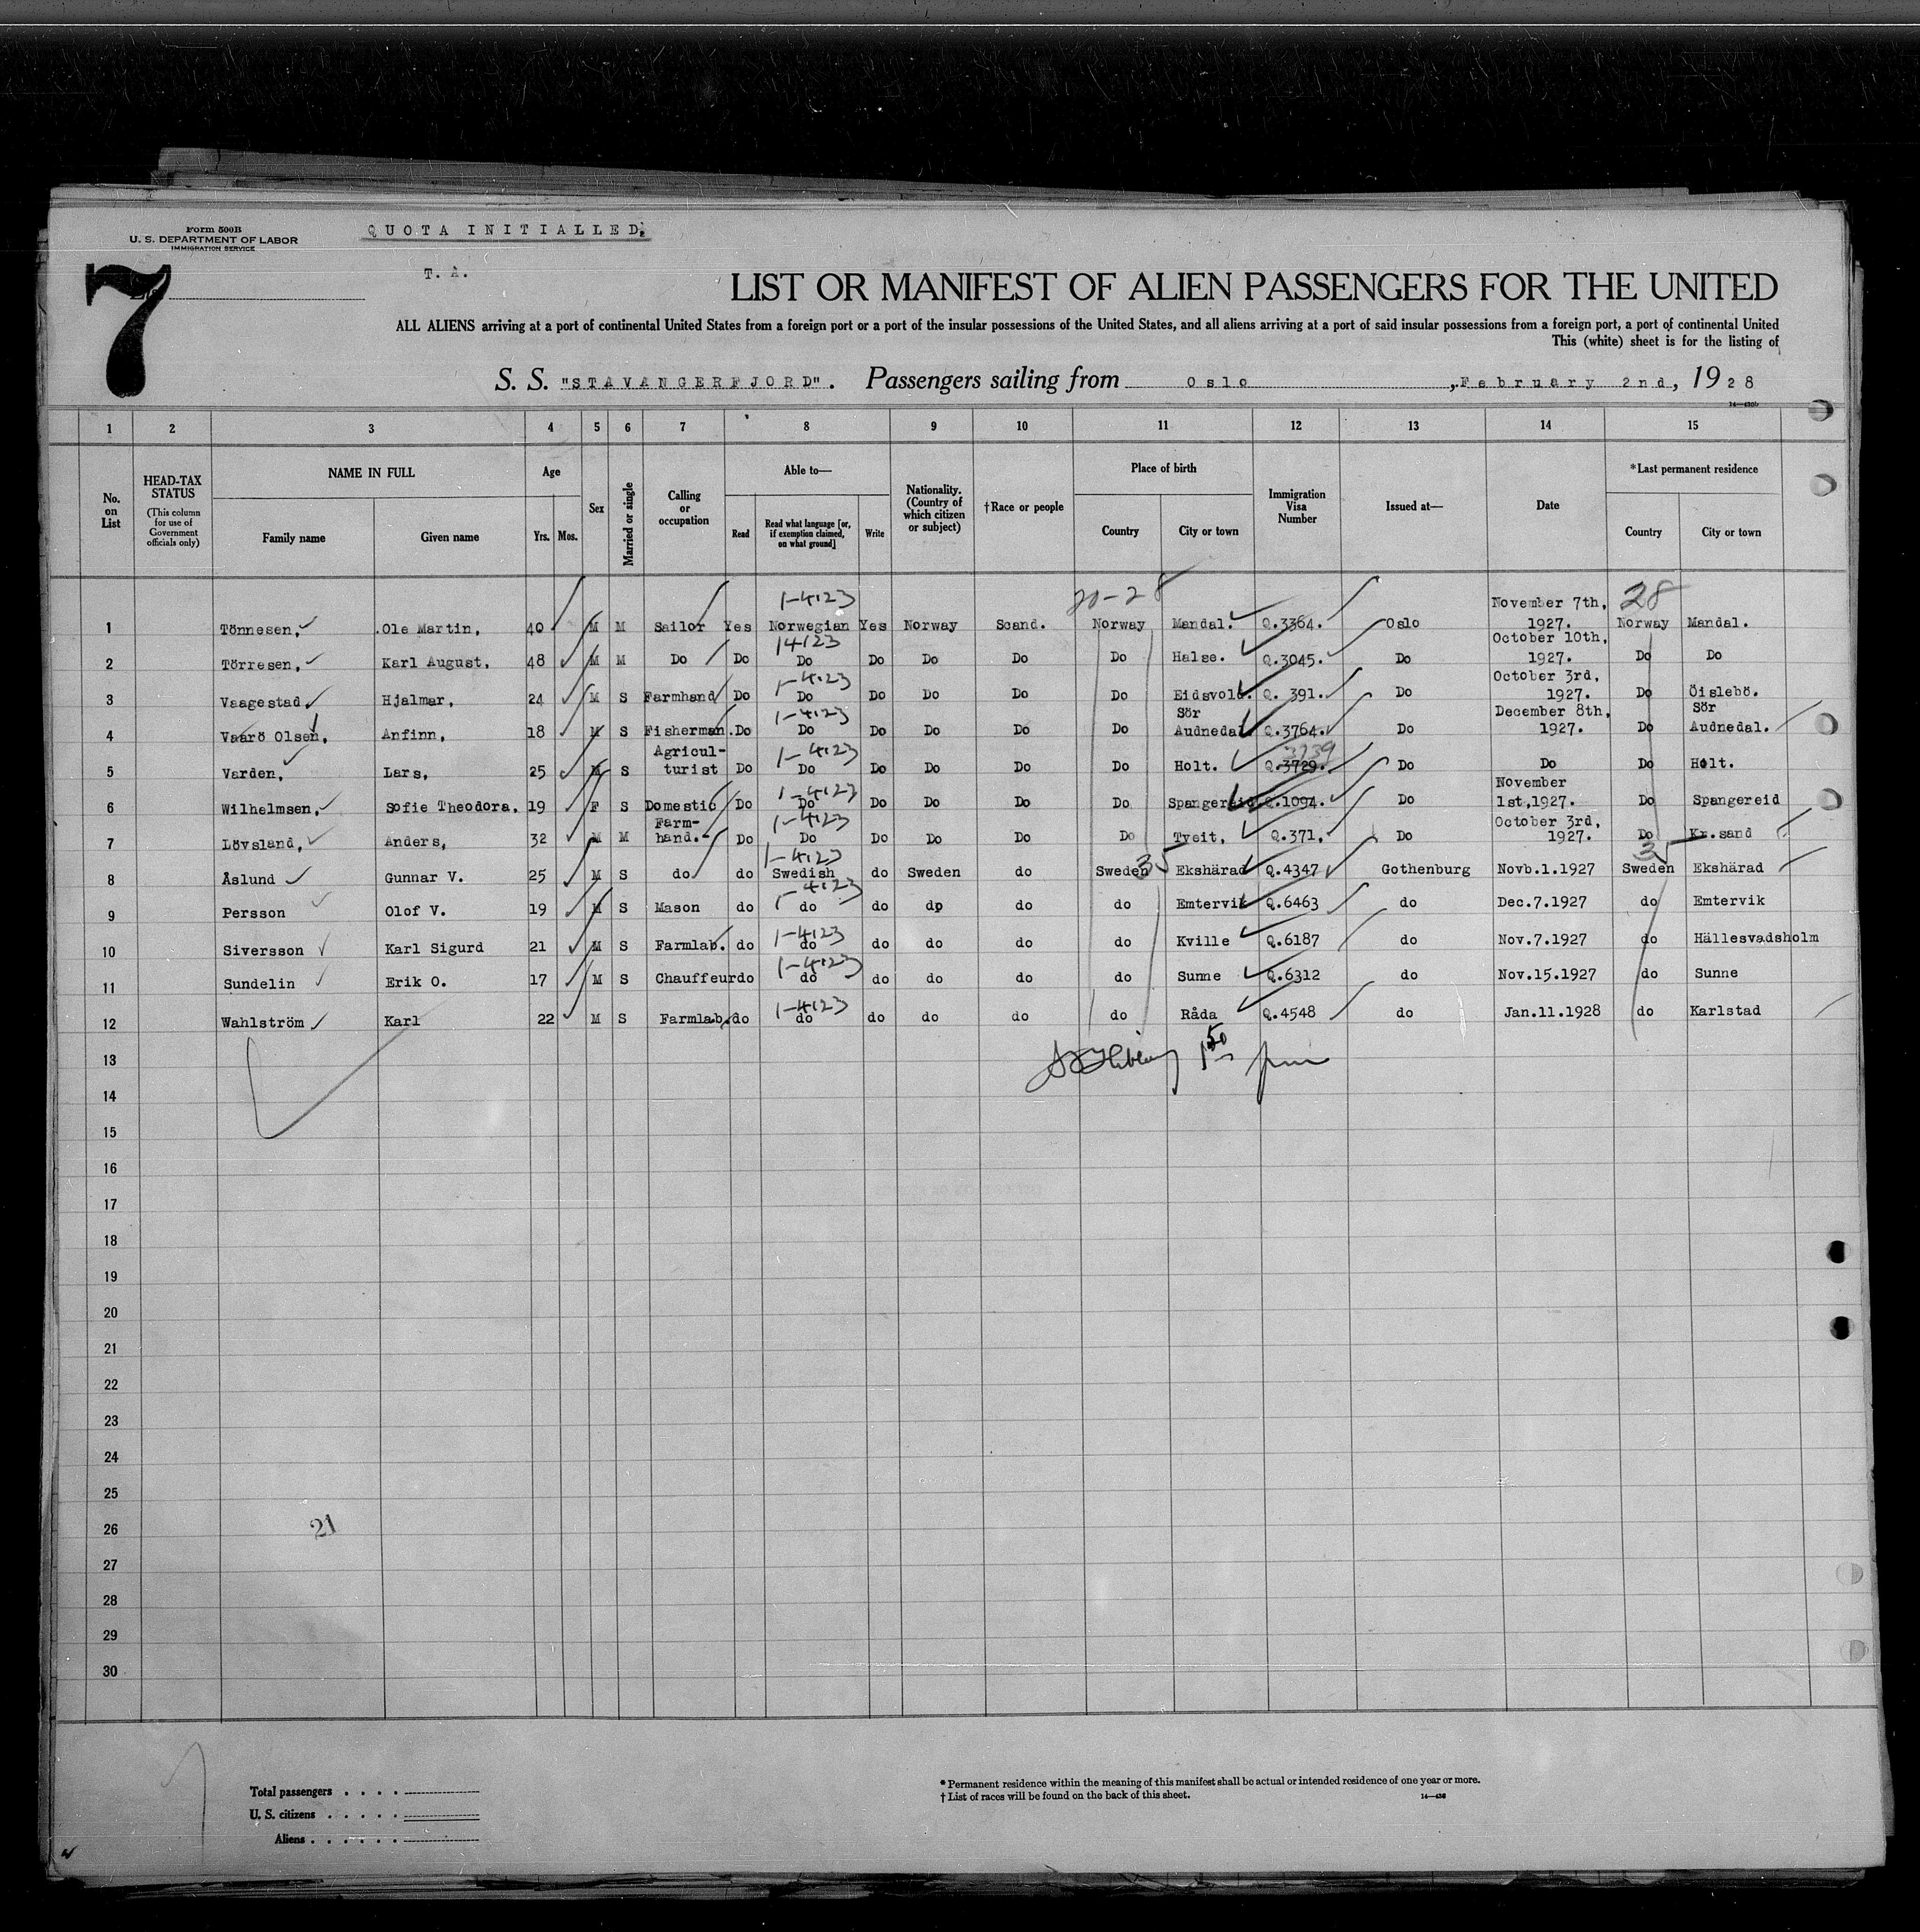 Form 500B
U. S. DEPARTMENT OF LABOR
IMMIGRATION SERVICE
QUOTA INITIALLED.
T. A.
7
LIST OR MANIFEST OF ALIEN PASSENGERS FOR THE UNITED
ALL ALIENS arriving at a port of continental United States from a foreign port or a port of the insular possessions of the United States, and all aliens arriving at a port of said insular possessions from a foreign port, a port of continental United
This (white) sheet is for the listing of
S. S. "STAVANGERFJORD". Passengers sailing from Oslo, February 2nd, 1928
1 2 3 4 5 6 7 8 9 10 11 12 13 14 15
No. on List
HEAD-TAX STATUS (This column for use of Government officials only)
NAME IN FULL Family name Given name
Age Yrs. Mos.
Sex
Married or single
Calling or occupation
Able to— Read Read what language [or, if exemption claimed, on what ground] Write
Nationality. (Country of which citizen or subject)
†Race or people
Place of birth Country City or town
Immigration Visa Number
Issued at—
Date
*Last permanent residence Country City or town
1-4123 20-28 28
1 Tönnesen, Ole Martin, 40 M M Sailor Yes Norwegian Yes Norway Scand. Norway Mandal. Q.3364. Oslo November 7th, 1927. Norway Mandal.
14123
2 Törresen, Karl August, 48 M M Do Do Do Do Do Do Do Halse. Q.3045. Do October 10th, 1927. Do Do
1-4123
3 Vaagestad Hjalmar, 24 M S Farmhand Do Do Do Do Do Do Eidsvold. Q. 391. Do October 3rd, 1927. Do Öislebö.
1-4123
4 Vaarö Olsen, Anfinn, 18 M S Fisherman. Do Do Do Do Do Do Sör Audnedal Q.3764. Do December 8th, 1927. Do Sör Audnedal.
1-4123 3739
5 Varden, Lars, 25 M S Agricul-turist Do Do Do Do Do Do Holt. Q.3729. Do Do Do Holt.
1-4123
6 Wilhelmsen, Sofie Theodora, 19 F S Domestic Do Do Do Do Do Do Spangereid Q.1094. Do November 1st,1927. Do Spangereid
1-4123
7 Lövsland, Anders, 32 M M Farm-hand.- Do Do Do Do Do Do Tveit, Q.371. Do October 3rd, 1927. Do Kr.sand
1-4123 35 35
8 Åslund Gunnar V. 25 M S do do Swedish do Sweden do Sweden Ekshärad Q.4347 Gothenburg Novb.1.1927 Sweden Ekshärad
1-4123
9 Persson Olof V. 19 M S Mason do do do do do do Emtervik Q.6463 do Dec.7.1927 do Emtervik
1-4123
10 Siversson Karl Sigurd 21 M S Farmlab. do do do do do do Kville Q.6187 do Nov.7.1927 do Hällesvadsholm
1-4123
11 Sundelin Erik O. 17 M S Chauffeur do do do do do do Sunne Q.6312 do Nov.15.1927 do Sunne
1-4123
12 Wahlström Karl 22 M S Farmlab. do do do do do do Råda Q.4548 do Jan.11.1928 do Karlstad
13
14
15
16
17
18
19
20
21
22
23
24
25
26 21
27
28
29
30
Total passengers . . . .
U. S. citizens . . . . .
Aliens . . . . . .
* Permanent residence within the meaning of this manifest shall be actual or intended residence of one year or more.
† List of races will be found on the back of this sheet.